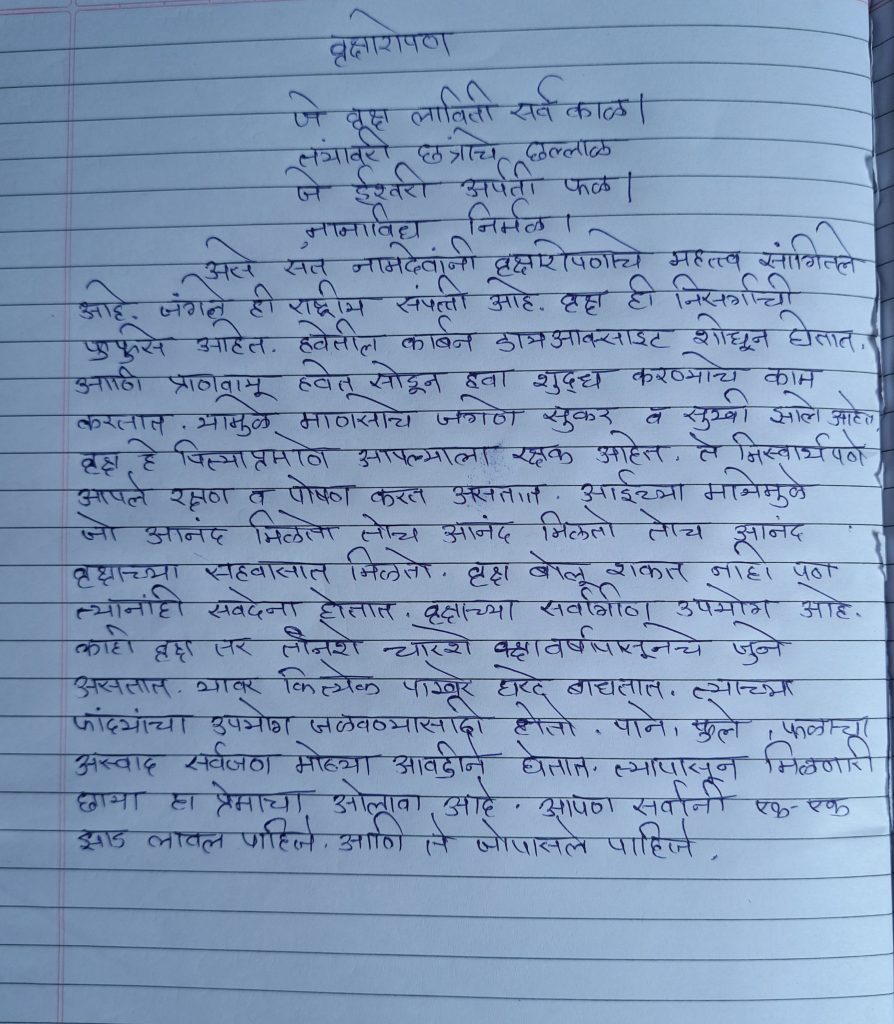 वृक्षारोपण
जे वृक्ष लाविती सर्व काळ।
तयावरी छत्रांचे छल्लाळ
जे ईश्वरी अर्पती फळ।
नानाविध निर्मळ।
असे संत नामदेवांनी वृक्षारोपणाचे महत्त्व सांगितले
आहे. जंगले ही राष्ट्रीय संपत्ती आहे. वृक्ष ही निसर्गाची
फुफुसे आहेत. हवेतील कार्बन डायऑक्साइट शोधून घेतात.
आणि प्राणवायू हवेत सोडून हवा शुद्ध करण्याचे काम
करतात. यामुळे माणसाचे जगणे सुकर व सुखी झाले आहेत.
वृक्ष हे पित्याप्रमाणे आपल्याला रक्षक आहेत. ते निस्वार्थपणे
आपले रक्षण व पोषण करत असतात. आईच्या मायेमुळे
जो आनंद मिळतो तोच आनंद मिळतो तोच आनंद
वृक्षाच्या सहवासात मिळतो. वृक्ष बोलू शकत नाही पण
त्यानांही संवदेना होतात. वृक्षाच्या सर्वांगीण उपयोग आहे.
काही वृक्ष तर तीनशे चारशे वर्षापासूनचे जुने
असतात. यावर कित्येक पाखरे घरटे बाधतात. त्याच्या
फांदयांचा उपयोग जळवण्यासाठी होतो. पाने, फुले, फळाचा
अस्वाद सर्वजण मोठ्या आवडीने घेतात. त्यापासून मिळणारी
छाया हा प्रेमाचा ओलावा आहे. आपण सर्वांनी एक-एक
झाड लावल पाहिजे. आणि ते जोपासले पाहिजे.